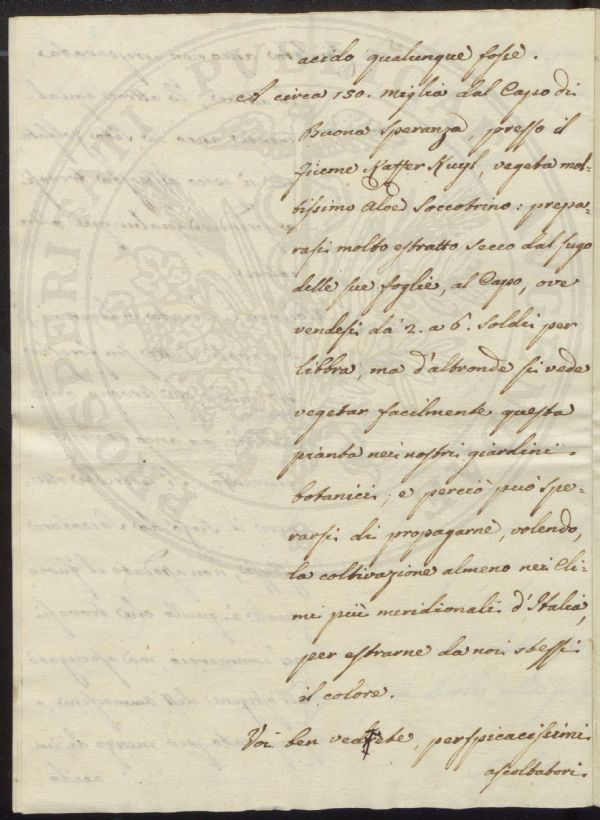 acido qualunque fosse.
A circa 150. miglia dal Capo di
Buona Speranza, presso il
fiume Kaffer Kuyl, vegeta mol-
tissimo Aloè Soccotrino: prepa-
rasi molto estratto secco dal sugo
delle sue foglie, al Capo, ove
vendesi dà 2. a 6. soldi per
libbra, ma d'altronde si vede
vegetar facilmente questa
pianta nei nostri giardini
botanici; e perciò può spe-
rarsi di propagarne, volendo,
la coltivazione almeno nei Cli-
mi più meridionali d'Italia,
per estrarne da noi stessi
il colore.
Voi ben vedete, perspicacissimi
ascoltatori